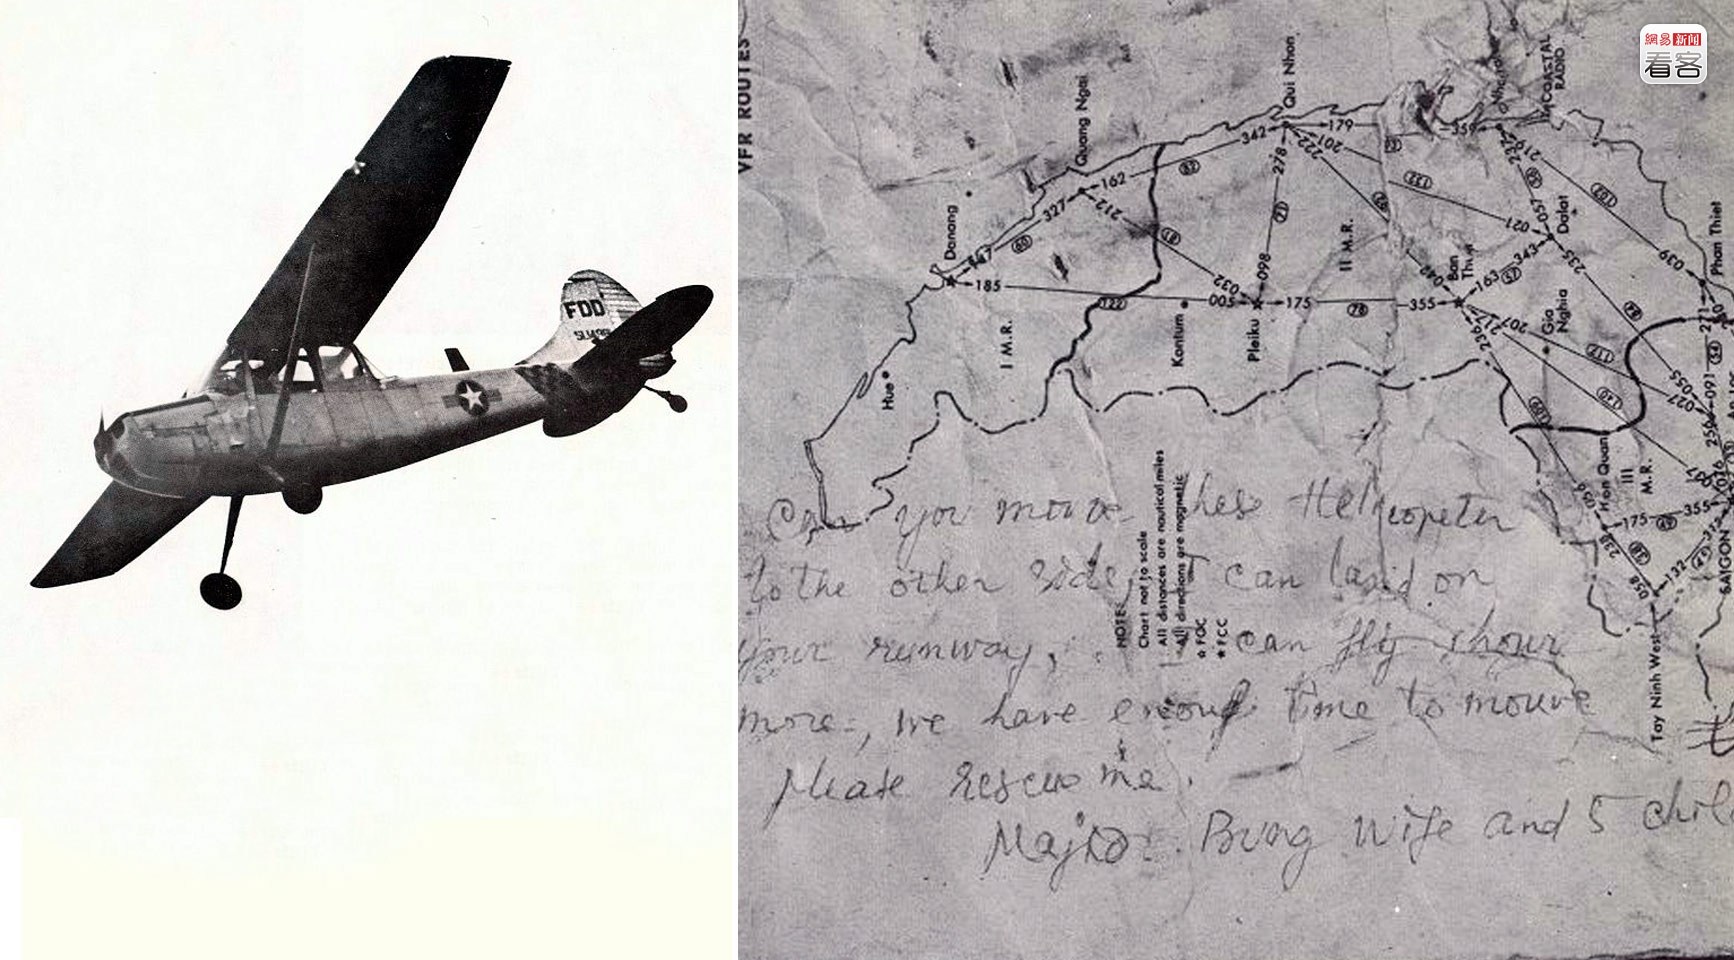 FDD
網易 新闻
看客
VFR ROUTES
Danang
Quang Ngai
Qui Nhon
COASTAL
RADIO
Hue
I M.R.
Kontum
Pleiku
II M.R.
Ban
Dalat
Gia
Nghia
Phan Thiet
Hon Quan
III
M.R.
SAIGON
Tay Ninh West
185
147
60
327
162
212
83
342
179
278
222
201
359
098
032
005
175
78
355
122
71
81
132
021
057
343
57
163
042
217
207
236
235
219
102
039
112
055
027
091
271
54
175
355
132
058
NOTE:
Chart not to scale
All distances are nautical miles
All directions are magnetic
☆ FOC
★ FCC
Can you mouve these Helicopter
to the other side, I can land on
your runway, I can fly 1 hour
more, we have enouf time to mouve
Please rescue me.
Major Bung wife and 5 chil